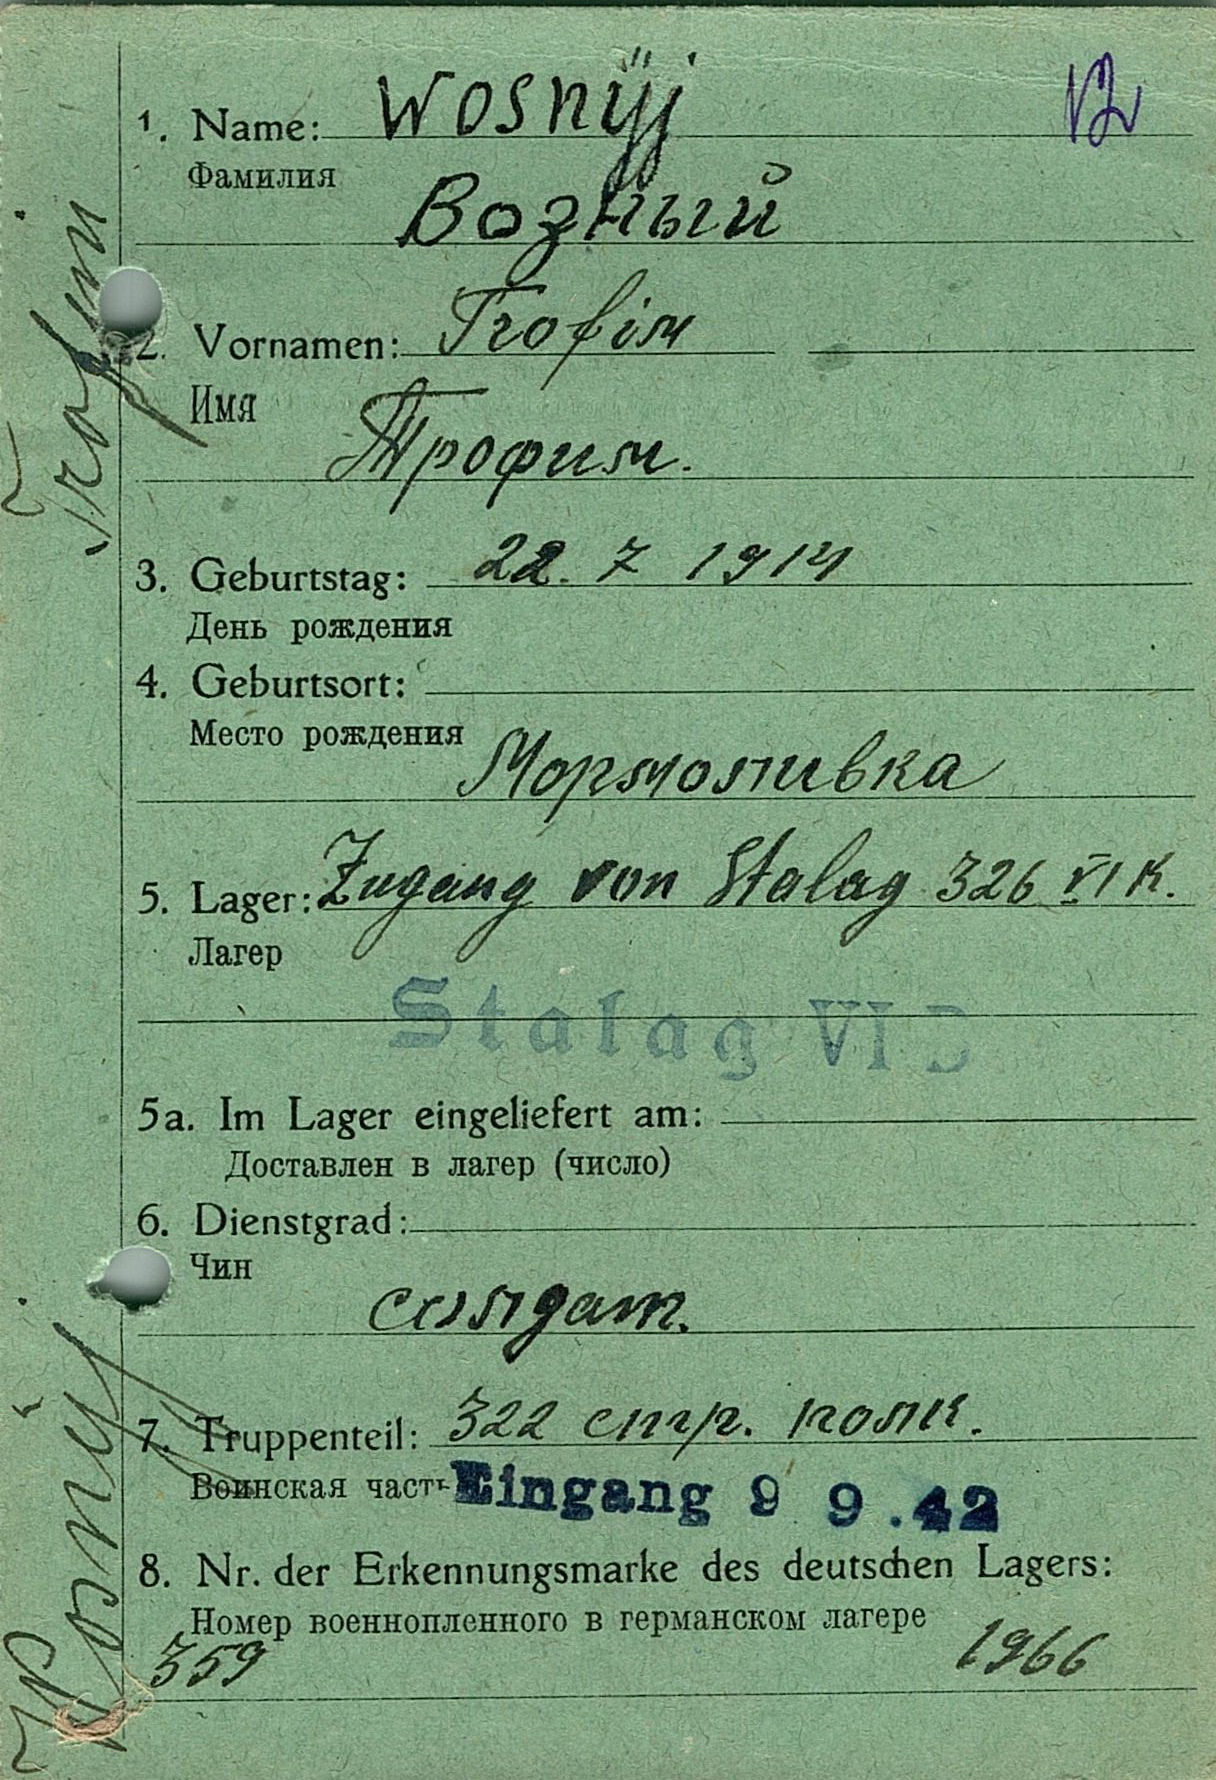 12
1. Name: Wosnyj
Фамилия
Возный
2. Vornamen: Trofim
Имя
Трофим.
3. Geburtstag: 22. 7 1914
День рождения
4. Geburtsort:
Место рождения
Мормоливка
5. Lager: Zugang von Stalag 326 VI K.
Лагер
Stalag VI D
5a. Im Lager eingeliefert am:
Доставлен в лагер (число)
6. Dienstgrad:
Чин
солдат.
7. Truppenteil: 322 стр. полк.
Воинская часть
Eingang 9 9.42
8. Nr. der Erkennungsmarke des deutschen Lagers:
Номер военнопленного в германском лагере
359 1966
Wosnyj Trofim